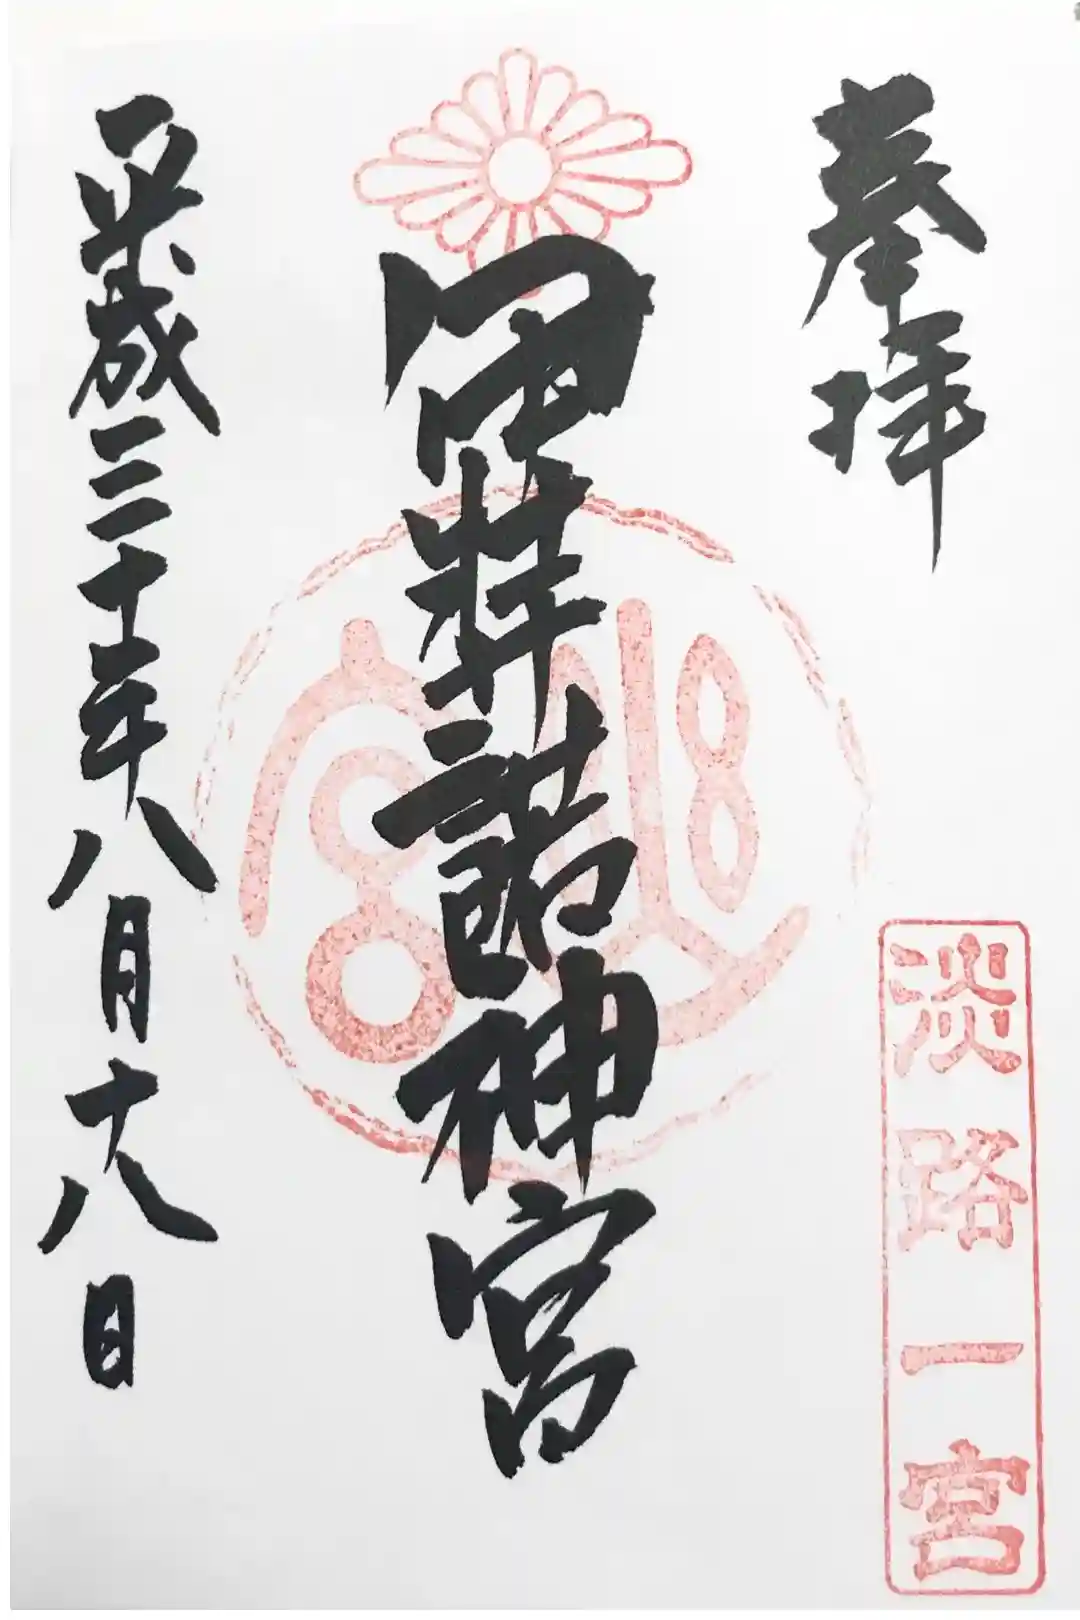 奉拝
淡路一宮
伊弉諾神宮
幽宮
平成三十年八月十八日